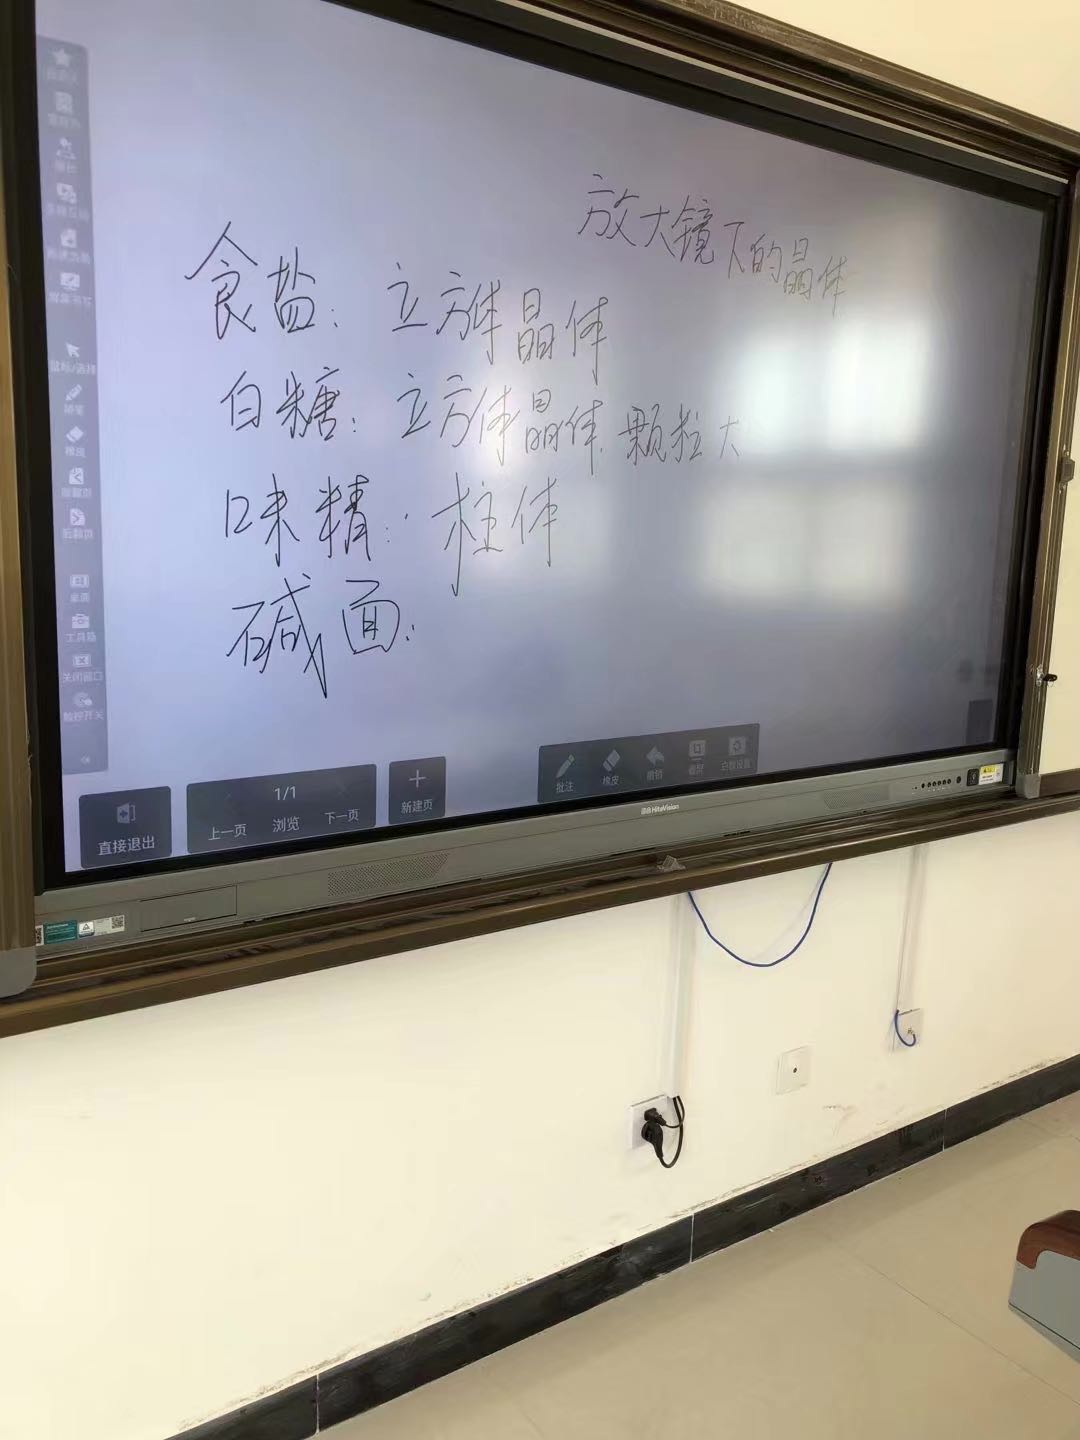 放大镜下的晶体
食盐：立方体晶体
白糖：立方体晶体.颗粒大
味精：柱体
碱面：
鼠标/选择
橡皮
后翻页
桌面
工具箱
关闭窗口
触控开关
直接退出
1/1
上一页 浏览 下一页
新建页
批注 橡皮 撤销
HiteVision